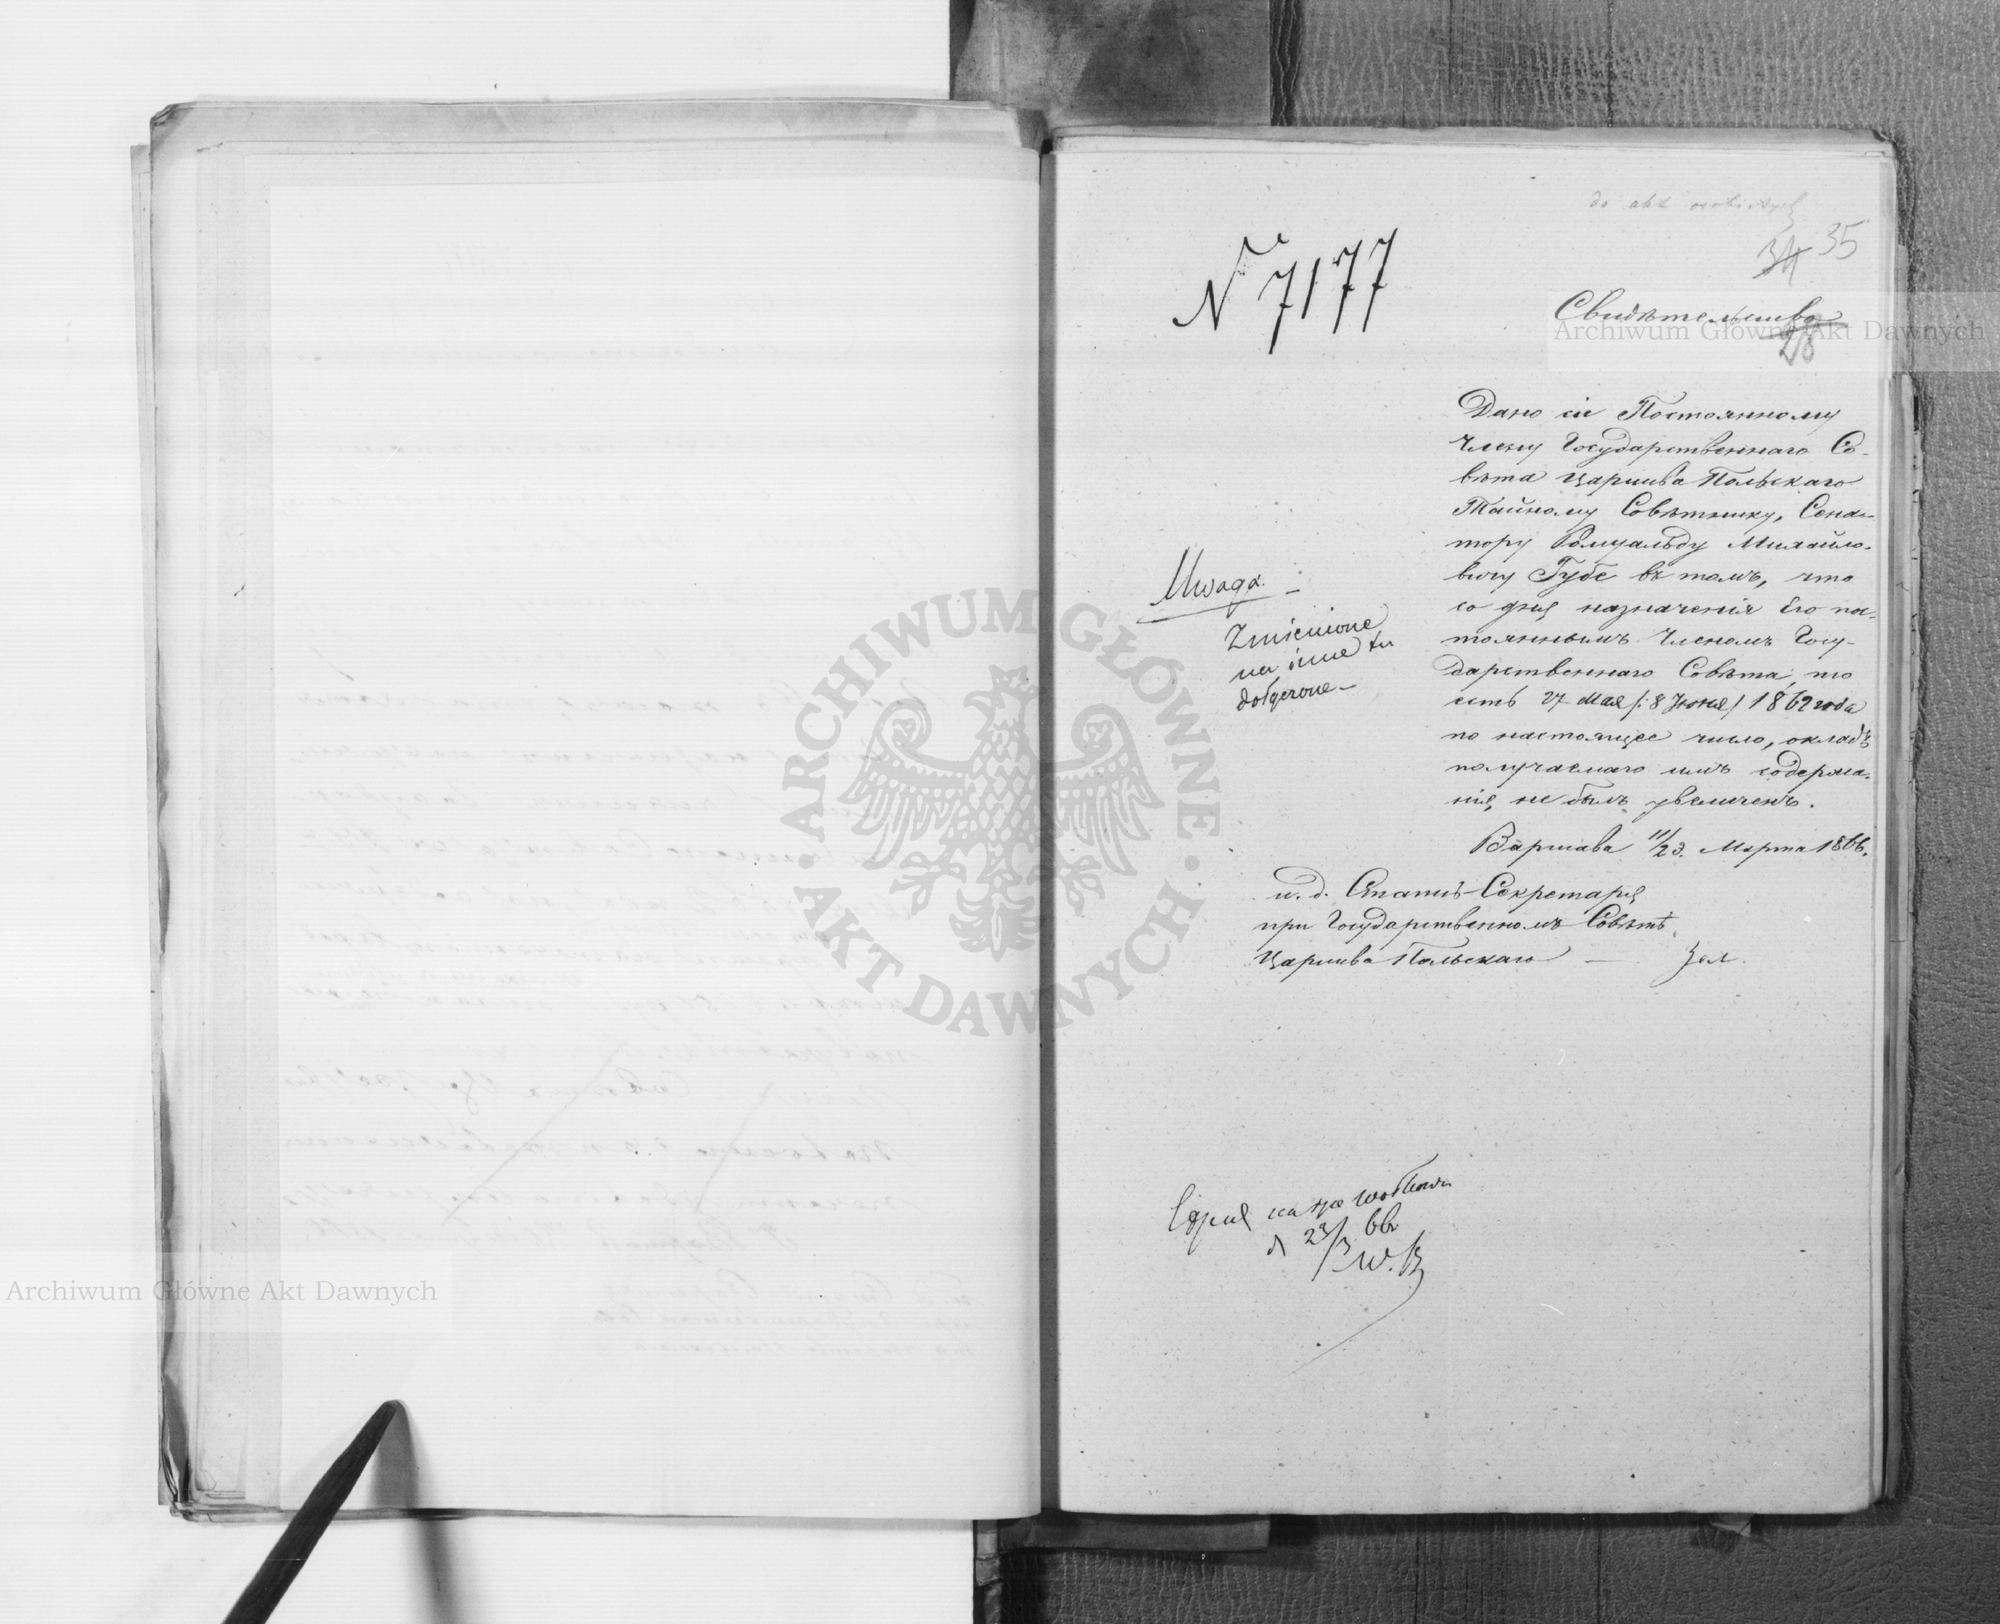 do akt osobistych
35
34
28
N 7177
Свидѣтельство
Дано сіе Постоянному
Члену Государственнаго Со-
вѣта Царства Польскаго
Тайному Совѣтнику, Сена-
тору Ромуальду Михайло-
вичу Губе въ томъ, что
со дня назначенія Его пос-
тояннымъ Членомъ Госу-
дарственнаго Совѣта, то
есть 27 Мая /:8 Іюня/ 1862 года
по настоящее число, окладъ
получаемаго имъ содержа-
нія, не былъ увеличенъ.
Варшава 11/23 Марта 1866.
и. д. Статсъ-Секретаря
при Государственномъ Совѣтѣ
Царства Польскаго —
Uwaga. —
Zmienione
na inne tu
dołączone —
d 23/3 66
Archiwum Główne Akt Dawnych
Archiwum Główne Akt Dawnych
ARCHIWUM GŁÓWNE · AKT DAWNYCH ·